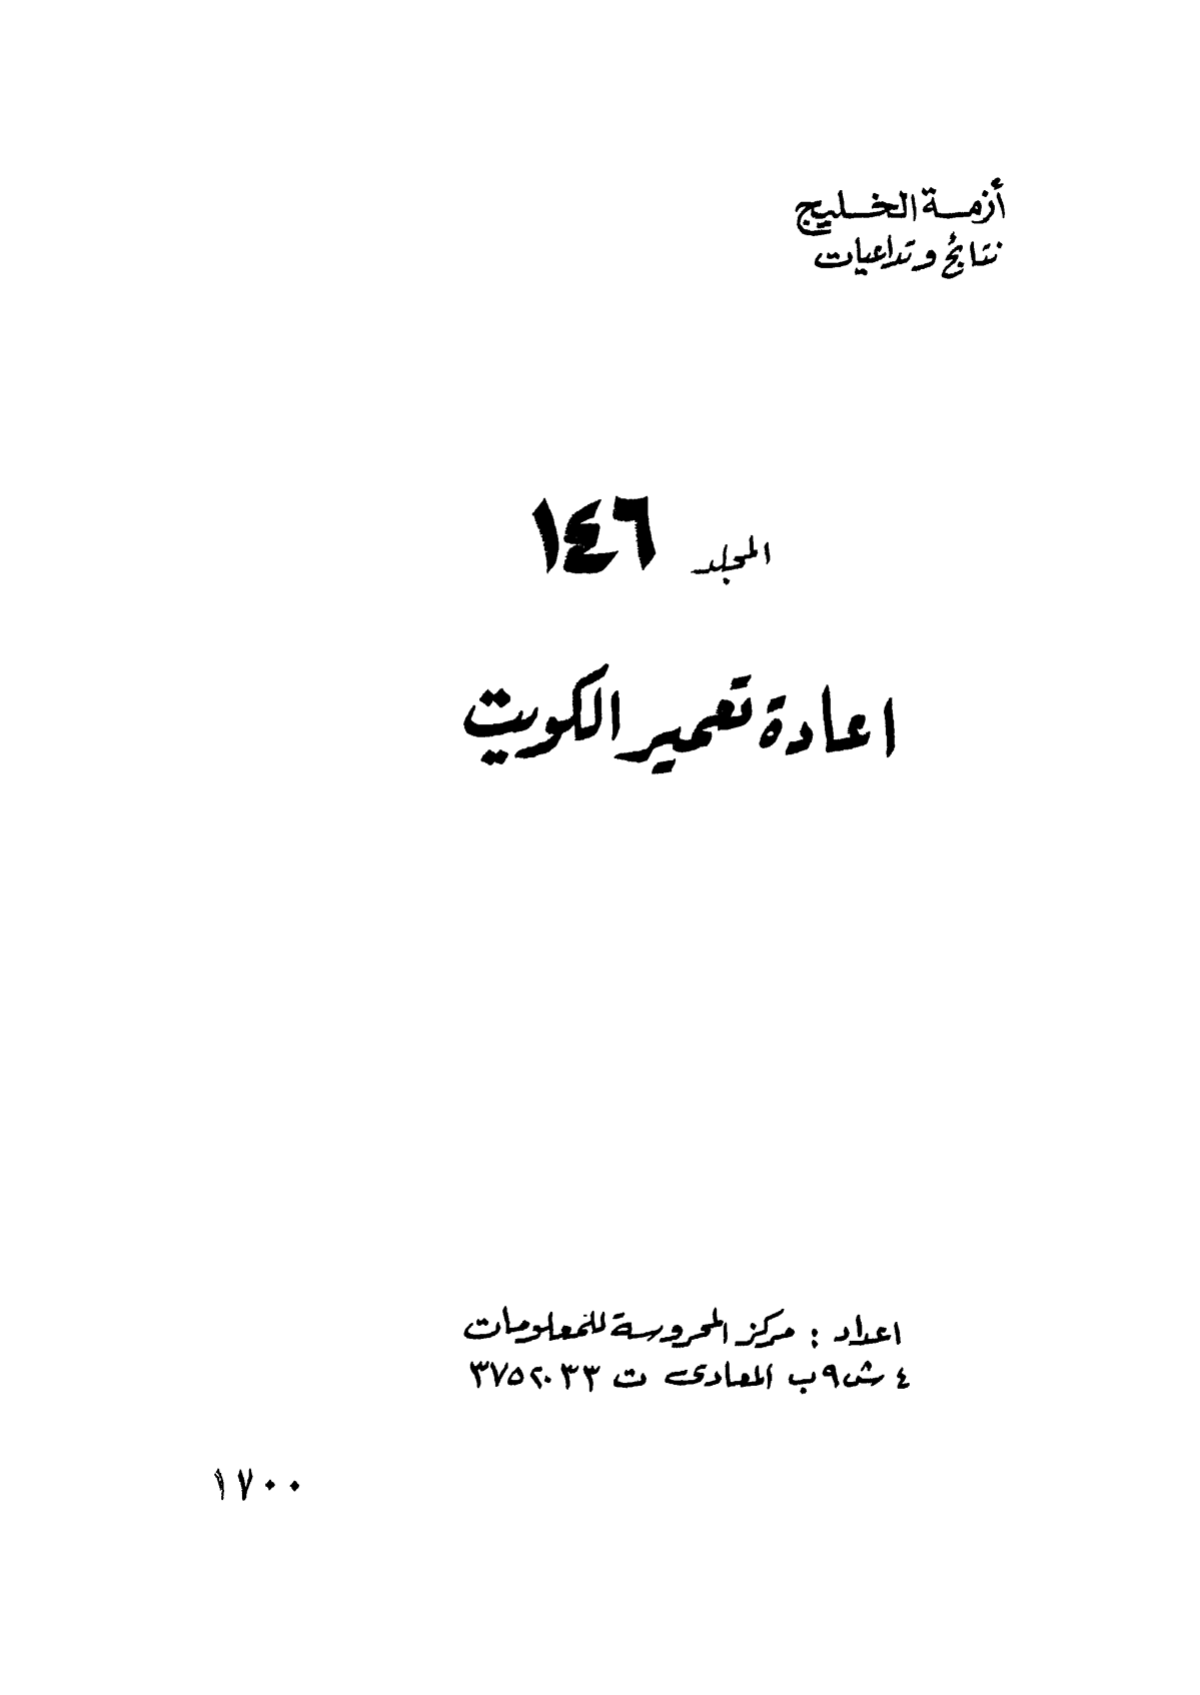 أزمة الخليج
نتائج وتداعيات
المجلد ١٤٦
اعادة تعمير الكويت
اعداد : مركز المحروسة للمعلومات
٤ ش ٩ب المعادى ت ٣٧٥٢٠٣٣
١٧٠٠